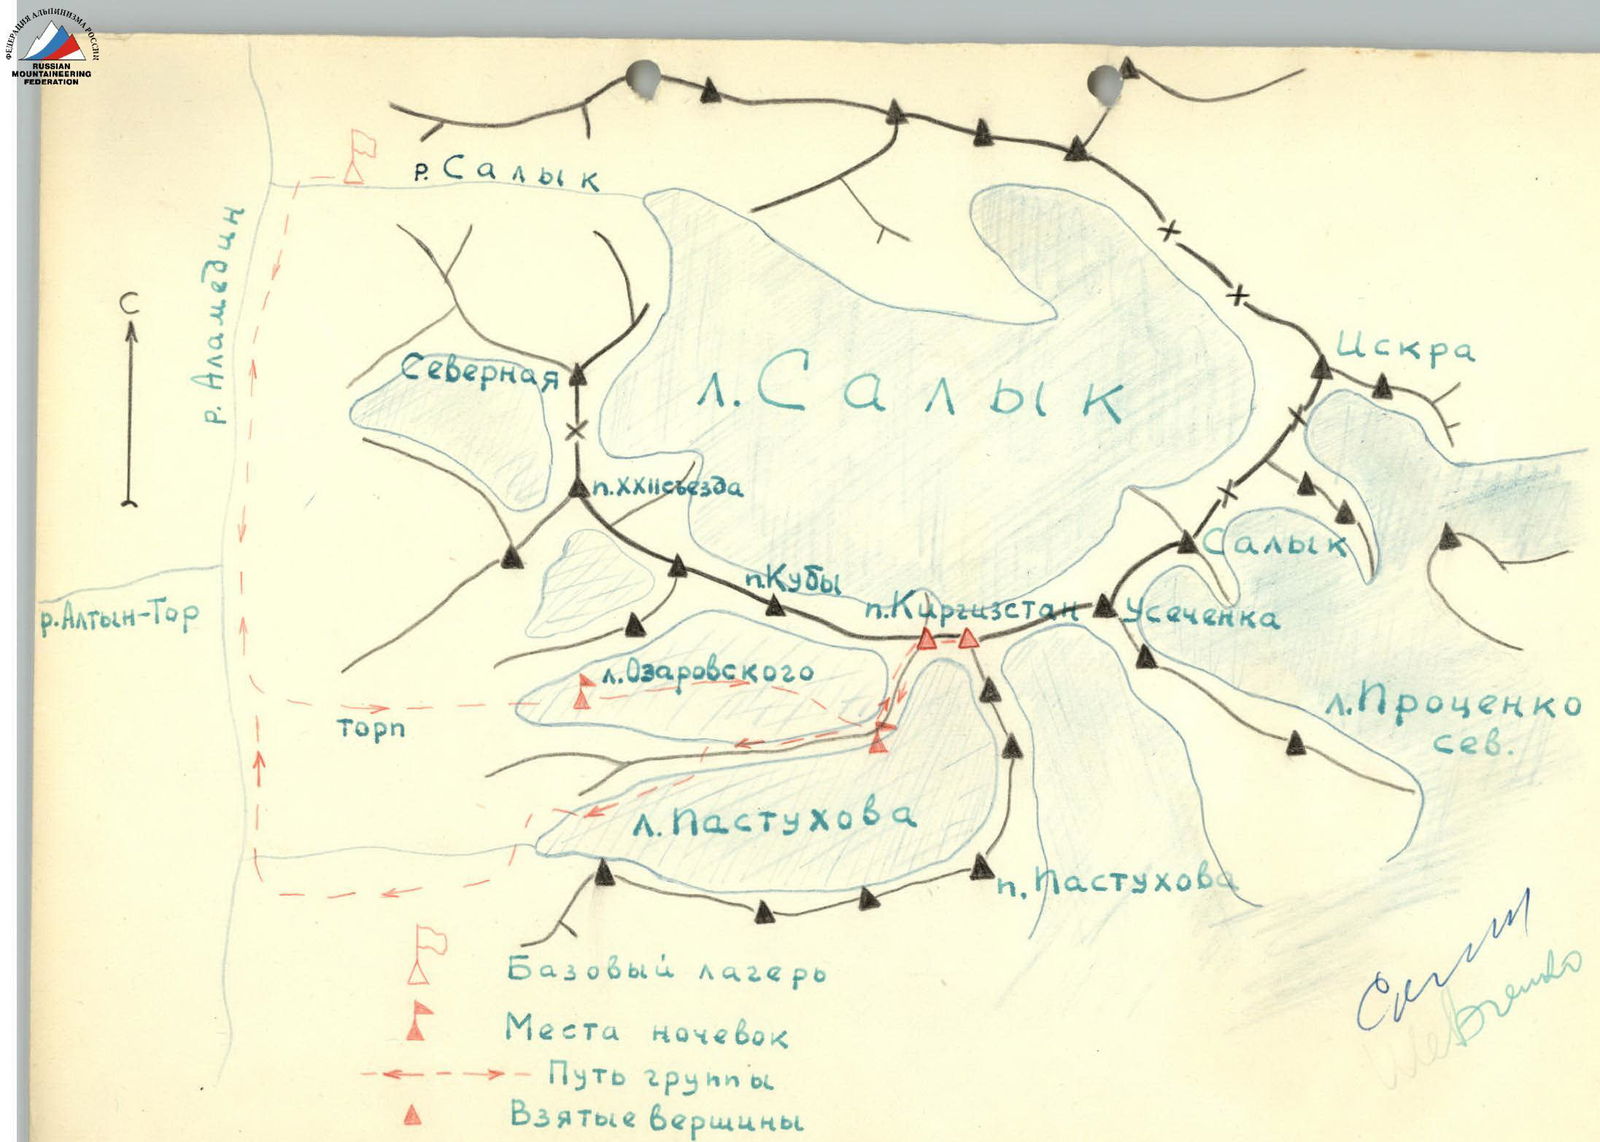 ФЕДЕРАЦИЯ АЛЬПИНИЗМА РОССИИ
RUSSIAN
MOUNTAINEERING
FEDERATION
р. Салык
р. Аламедин
С
Искра
Северная
л. Салык
п. XXII съезда
Салык
п. Кубы
п. Киргизстан
Усеченка
р. Алтын-Тор
л. Озаровского
л. Проценко
сев.
торп
л. Пастухова
п. Пастухова
Базовый лагерь
Места ночевок
Путь группы
Взятые вершины